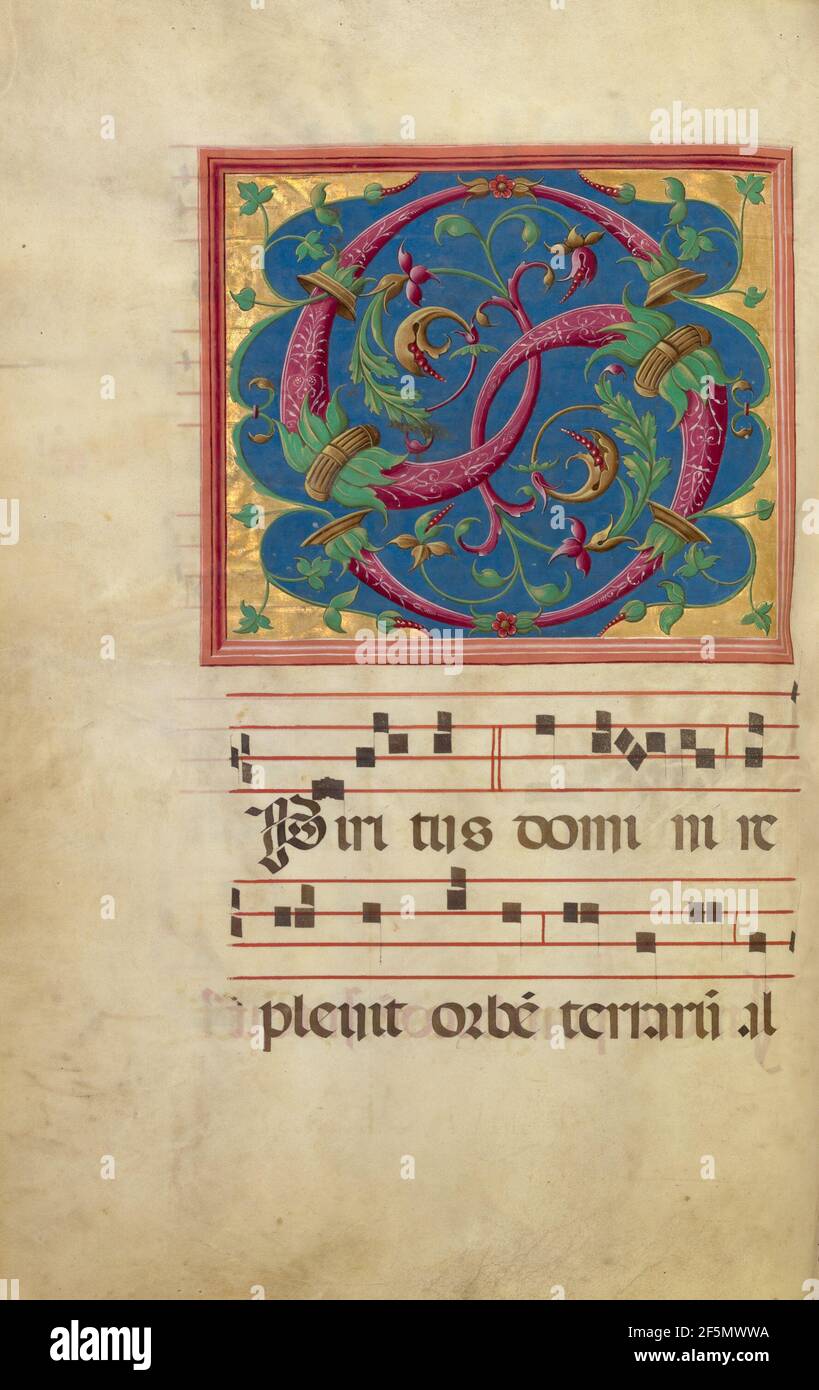 S
Piri tus domi ni re
plevit orbē terrarū al
alamy
a
Image ID: 2F5MWWA
www.alamy.com